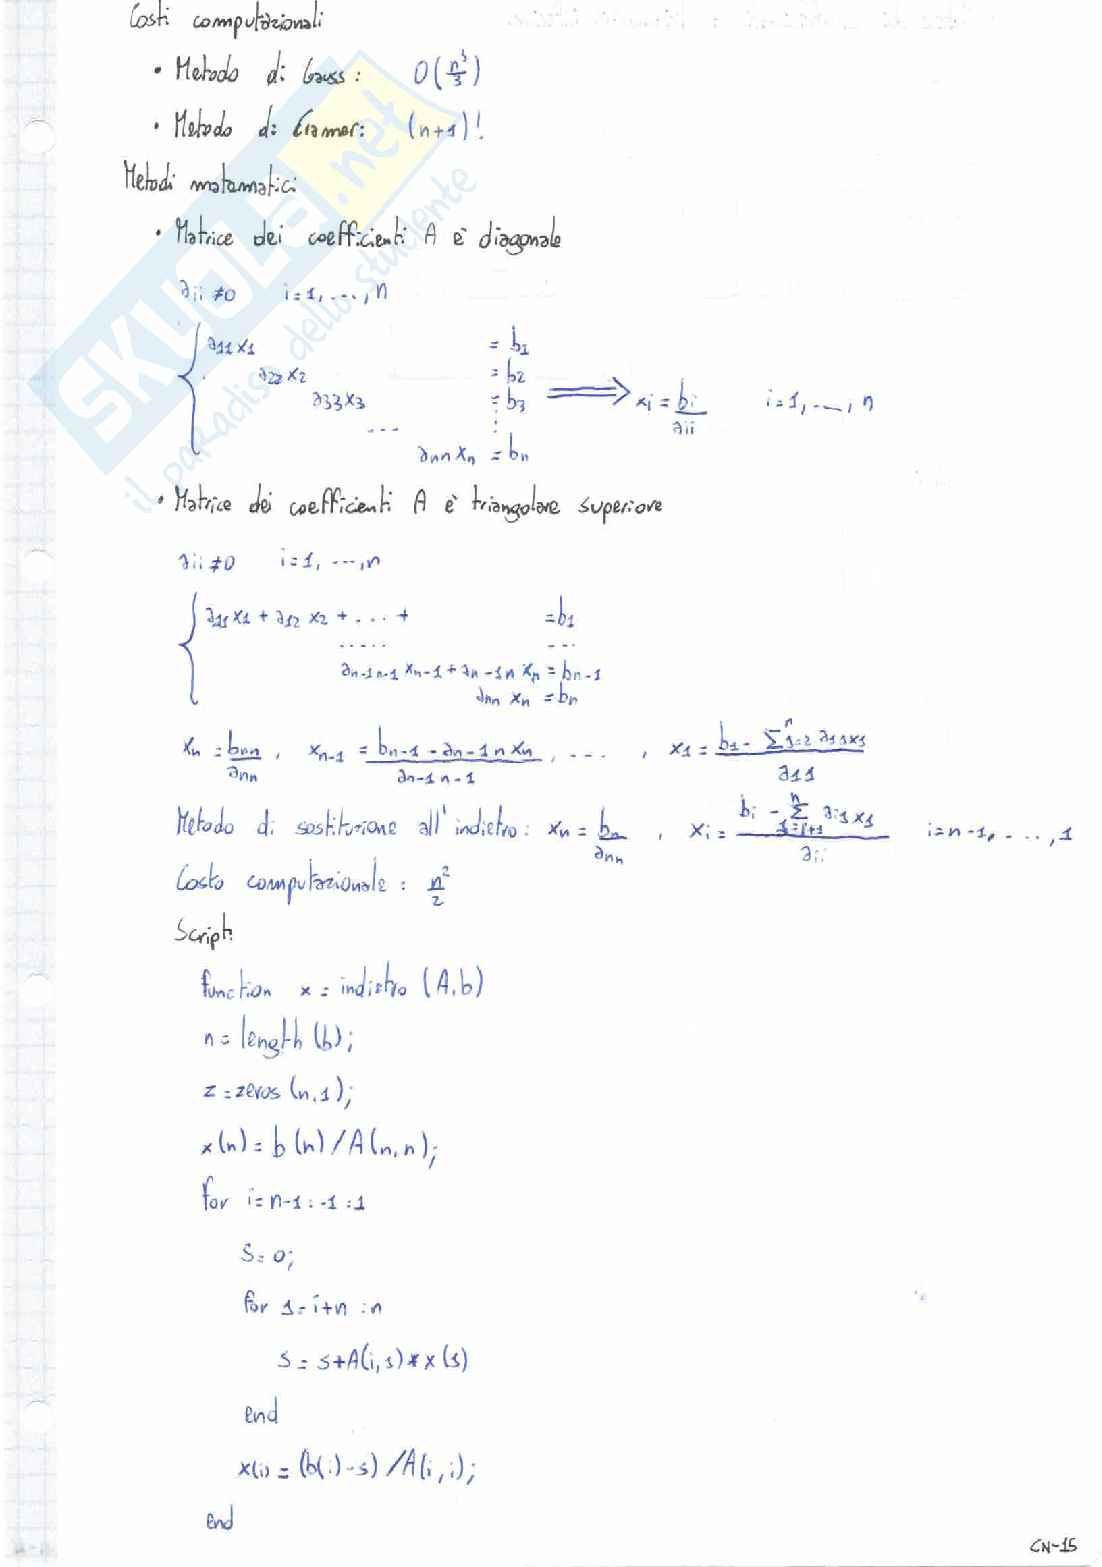 Costi computazionali
• Metodo di Gauss: O(n³/3)
• Metodo di Cramer: (n+1)!
Metodi matematici
• Matrice dei coefficienti A è diagonale
aii ≠0 i=1, ..., n
a11 x1 = b1
a22 x2 = b2
a33 x3 = b3 ⟹ xi = bi/aii i=1, ..., n
... ⋮
ann xn = bn
• Matrice dei coefficienti A è triangolare superiore
aii ≠0 i=1, ..., n
a11 x1 + a12 x2 + .... + =b1
..... ...
an-1n-1 xn-1 + an-1n xn = bn-1
ann xn = bn
xn = bnn/ann , xn-1 = (bn-1 - an-1n xn)/an-1n-1 , .... , x1 = (b1 - Σⁿ_{J=2} a1J xJ)/a11
Metodo di sostituzione all'indietro: xn = bn/ann , xi = (bi - Σⁿ_{J=i+1} aiJ xJ)/aii i=n-1, ..., 1
Costo computazionale: n²/2
Script
function x = indietro (A,b)
n = length (b);
z = zeros (n,1);
x(n) = b(n) / A(n,n);
for i = n-1 : -1 : 1
S = 0;
for J = i+n : n
S = S+A(i,J) * x(J)
end
x(i) = (b(i)-s) /A(i,i);
end
CN-15
SKUOLA.net
il paradiso dello studente